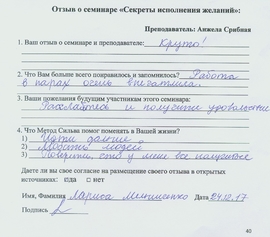 Отзыв о семинаре «Секреты исполнения желаний»:
Преподаватель: Анжела Срибная
1. Ваш отзыв о семинаре и преподавателе: Круто!
2. Что Вам больше всего понравилось и запомнилось? Работа
в парах очень впечатлила.
3. Ваши пожелания будущим участникам этого семинара:
Расслабьтесь и получите удовольствие
4. Что Метод Сильва помог поменять в Вашей жизни?
1) Идти дальше
2) Любить людей
3) Поверить, что у меня все получится
Даете ли вы свое согласие на размещение своего отзыва в открытых
источниках: да нет
Имя, Фамилия Лариса Дата 24.12.17
Подпись
40